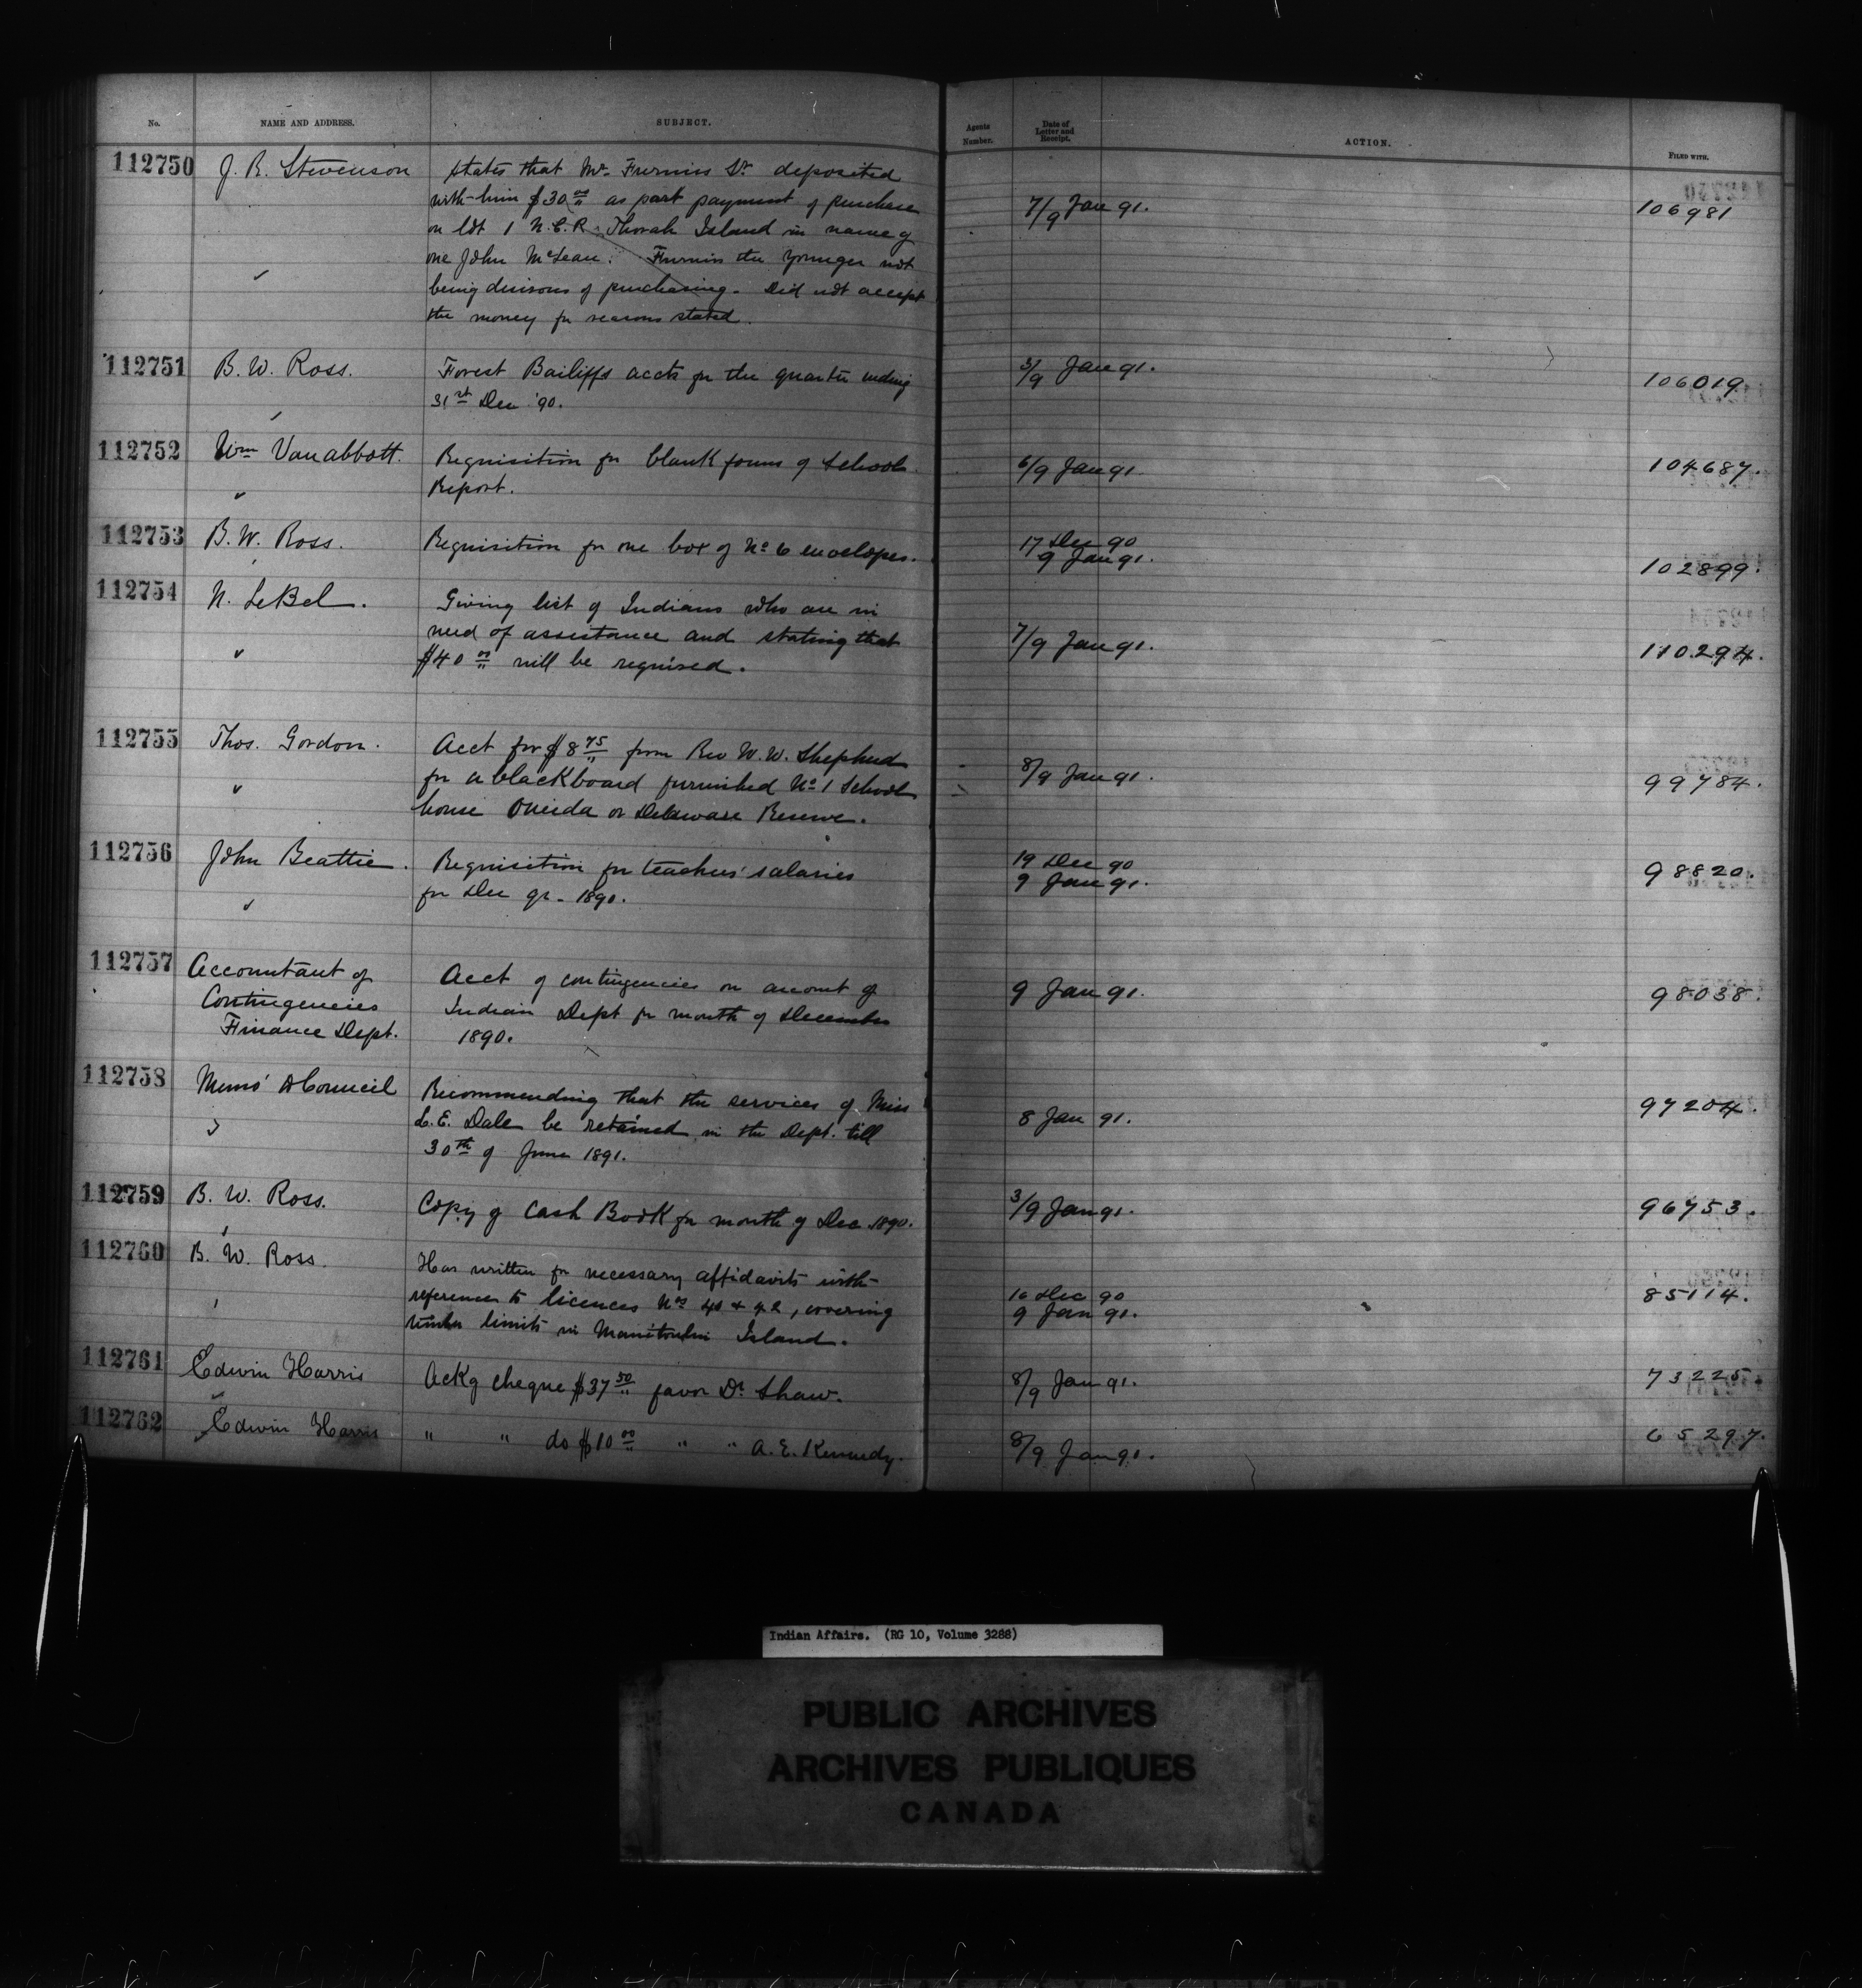 No. NAME AND ADDRESS. SUBJECT. Agents Number. Date of Letter and Receipt. ACTION. FILED WITH.
112750 J. R. Stevenson States that Mr. Furniss Sr. deposited
with him $30 00 as part payment of purchase 7/9 Jan 91. 106981
on lot 1 N.E.R. Thorah Island in name of
one John McLean. Furniss the younger not
being desirous of purchasing. Did not accept
the money for reasons stated.
112751 B. W. Ross. Forest Bailiffs accts for the quarter ending 3/9 Jan 91. 106019
31st Dec '90.
112752 Wm Vanabbott. Requisition for blank forms of School 6/9 Jan 91 104687.
Report.
112753 B. W. Ross. Requisition for one box of No 6 envelopes. 17 Dec 90
9 Jan 91. 102899.
112754 N. LeBel. Giving list of Indians who are in
need of assistance and stating that 7/9 Jan 91. 110294.
$40 00 will be required.
112755 Thos. Gordon. Acct for $8 75 from Rev W. W. Shepherd
for a blackboard furnished No 1 School 8/9 Jan 91. 99784.
house Oneida or Delaware Reserve.
112756 John Beattie. Requisition for teachers' salaries 19 Dec 90 98820.
for Dec qr. 1890. 9 Jan 91.
112757 Accountant of Acct of contingencies on account of
Contingencies Indian Dept for month of December 9 Jan 91. 98038.
Finance Dept. 1890.
112758 Council Recommending that the services of Miss
L. E. Dale be retained in the Dept. till 8 Jan 91. 97204.
30th of June 1891.
112759 B. W. Ross. Copy of Cash Book for month of Dec 1890. 3/9 Jan 91. 96753.
112760 B. W. Ross. Has written for necessary affidavits with
reference to licences Nos 40 & 42, covering 16 Dec 90 85114.
timber limits in Manitoulin Island. 9 Jan 91.
112761 Edwin Harris Ackg cheque $37 50 favor Dr Shaw. 8/9 Jan 91. 73225.
112762 Edwin Harris " " do $10 00 " " A. E. Kennedy. 8/9 Jan 91. 65297.
Indian Affairs. (RG 10, Volume 3288)
PUBLIC ARCHIVES
ARCHIVES PUBLIQUES
CANADA